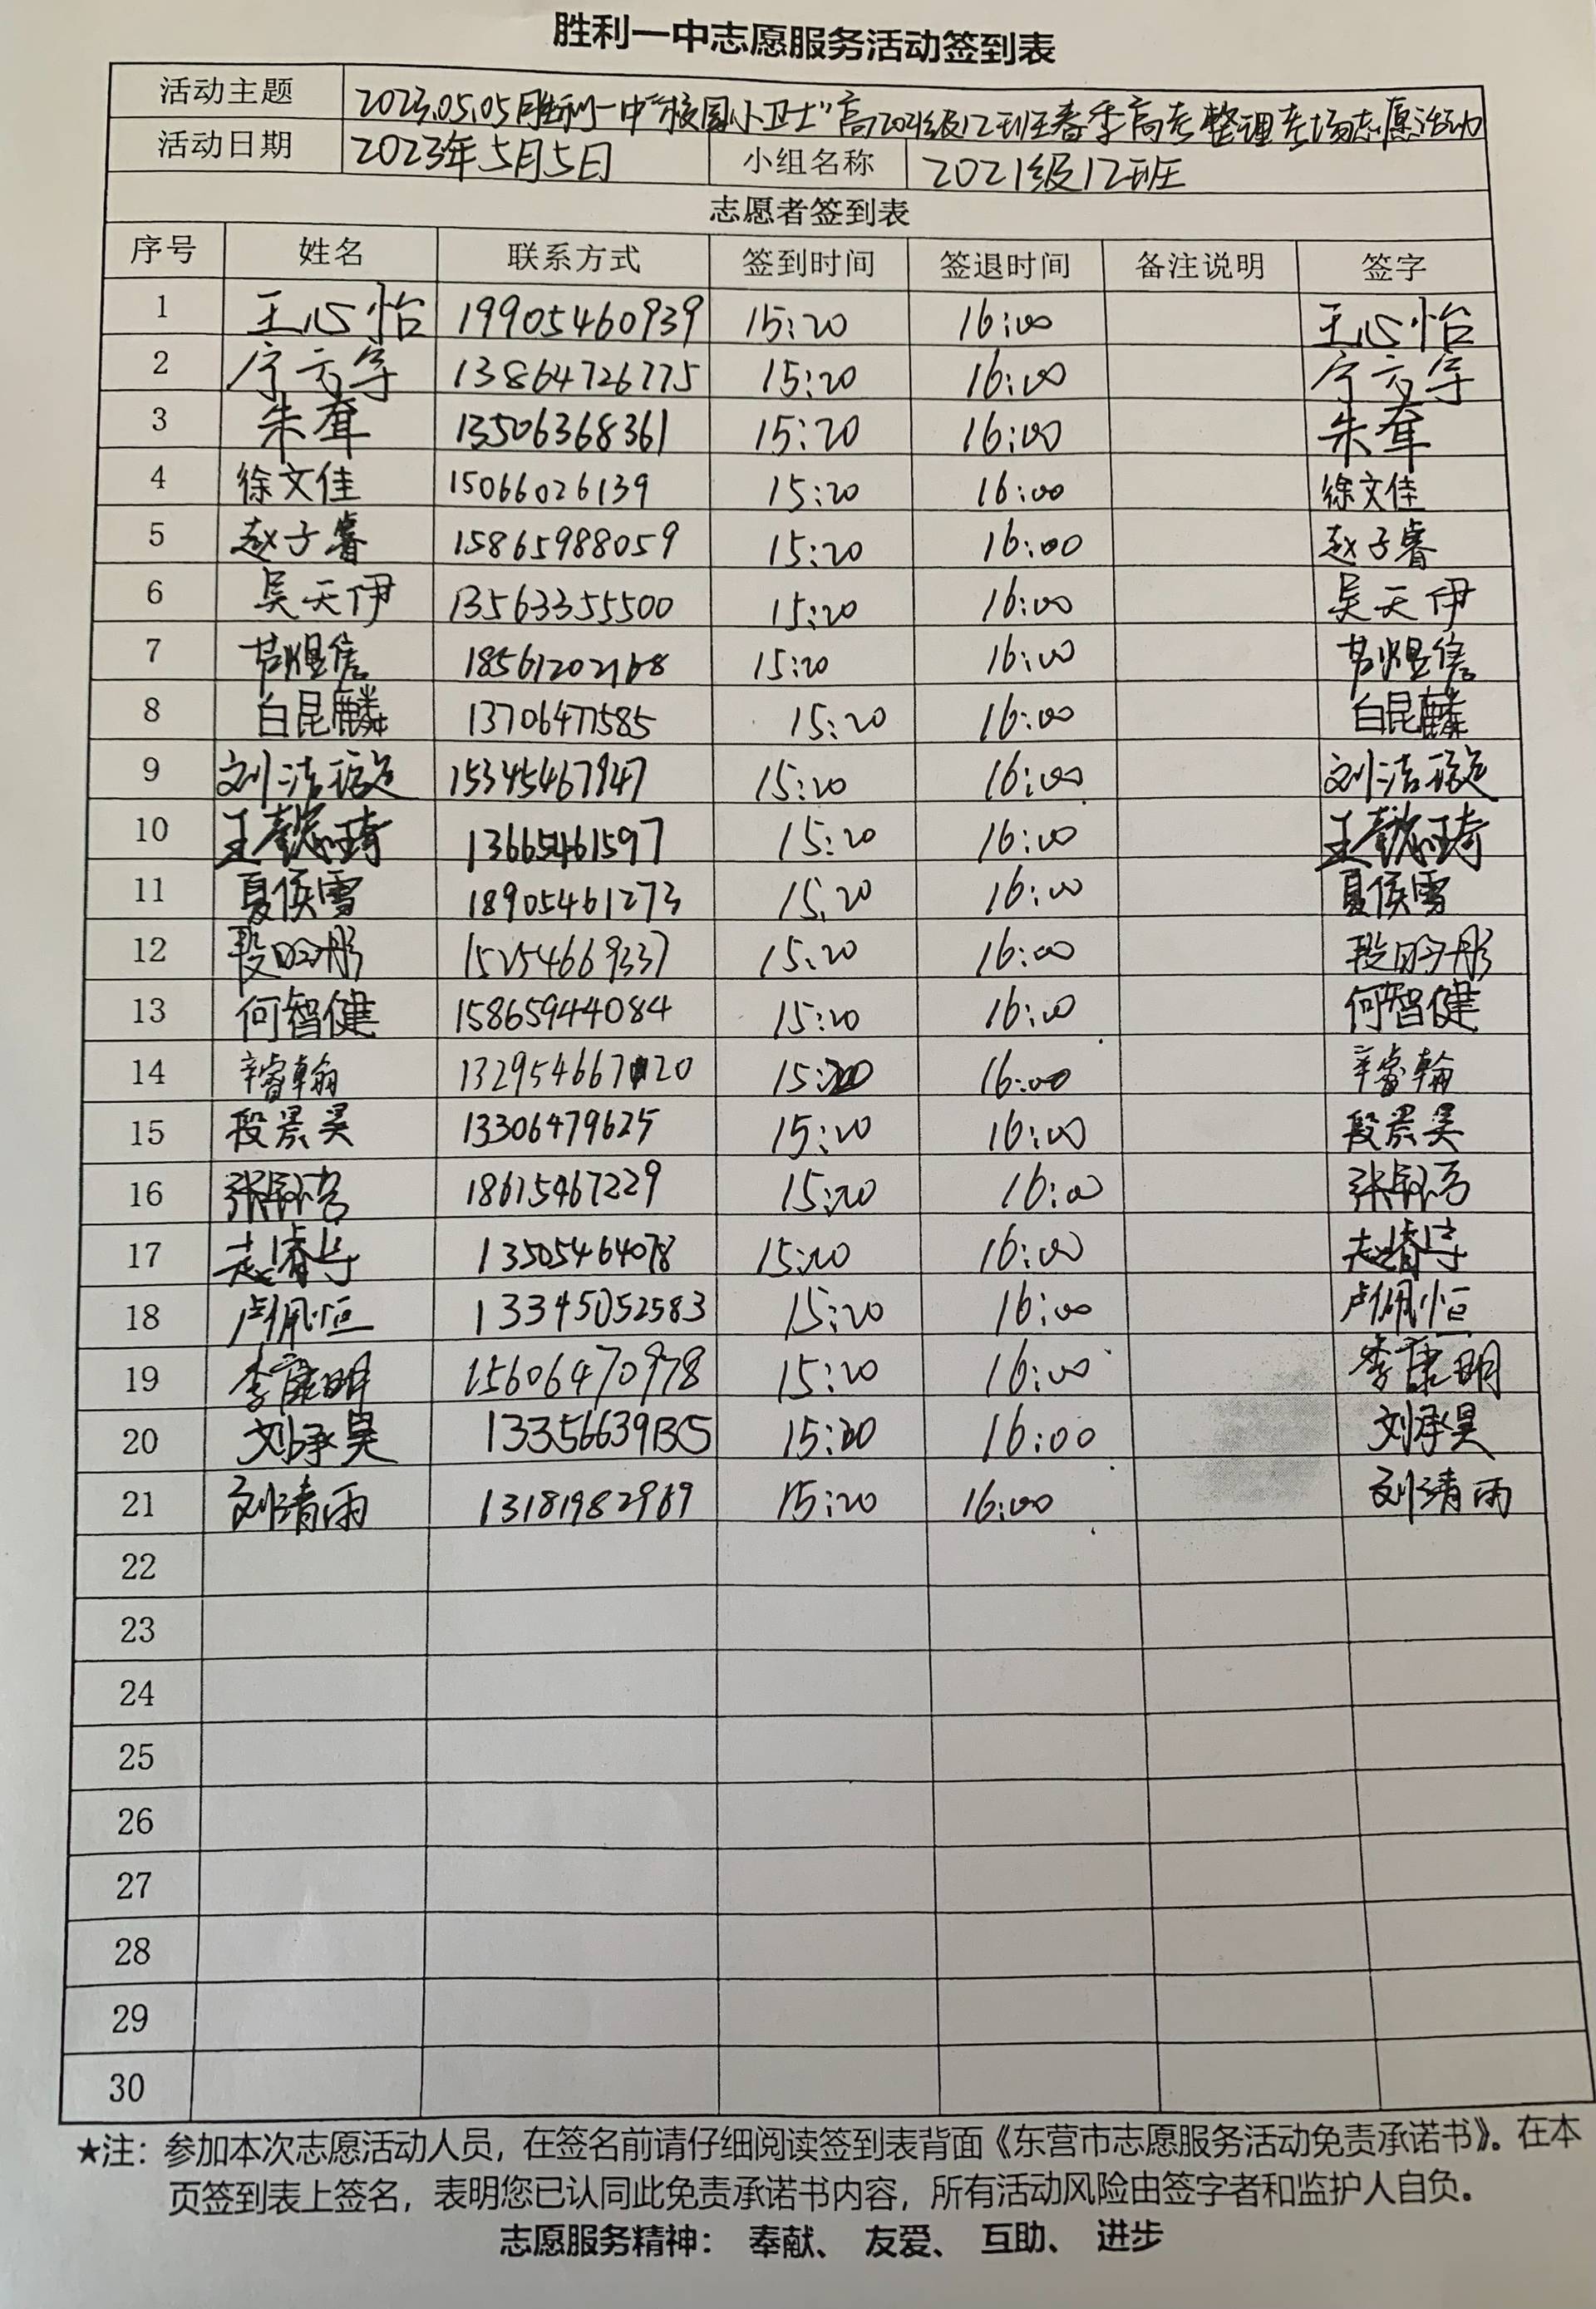 胜利一中志愿服务活动签到表
活动主题 2023.05.05胜利一中"校园小卫士"高2021级12班至春季高考整理考场志愿活动
活动日期 2023年5月5日 小组名称 2021级12班
志愿者签到表
序号 姓名 联系方式 签到时间 签退时间 备注说明 签字
1 王心怡 19905460939 15:20 16:00 王心怡
2 13864726775 15:20 16:00
3 朱耷 13506368361 15:20 16:00 朱耷
4 徐文佳 15066026139 15:20 16:00 徐文佳
5 赵子睿 15865988059 15:20 16:00 赵子睿
6 吴天伊 13563355500 15:20 16:00 吴天伊
7 15:20 16:00
8 白昆麟 13706477585 15:20 16:00 白昆麟
9 15345467947 15:20 16:00
10 13665461597 15:20 16:00
11 夏侯雪 18905461273 15:20 16:00 夏侯雪
12 15254669337 15:20 16:00
13 何智健 15865944084 15:20 16:00 何智健
14 辛睿翰 15:20 16:00 辛睿翰
15 段景昊 13306479625 15:20 16:00 段景昊
16 18615467229 15:20 16:00
17 赵睿宇 13505464078 15:20 16:00 赵睿宇
18 卢佩恒 13345052583 15:20 16:00 卢佩恒
19 李康明 15606470978 15:20 16:00 李康明
20 刘承昊 13356639135 15:20 16:00 刘承昊
21 刘清雨 13181982989 15:20 16:00 刘清雨
22
23
24
25
26
27
28
29
30
★注：参加本次志愿活动人员，在签名前请仔细阅读签到表背面《东营市志愿服务活动免责承诺书》。在本
页签到表上签名，表明您已认同此免责承诺书内容，所有活动风险由签字者和监护人自负。
志愿服务精神： 奉献、 友爱、 互助、 进步